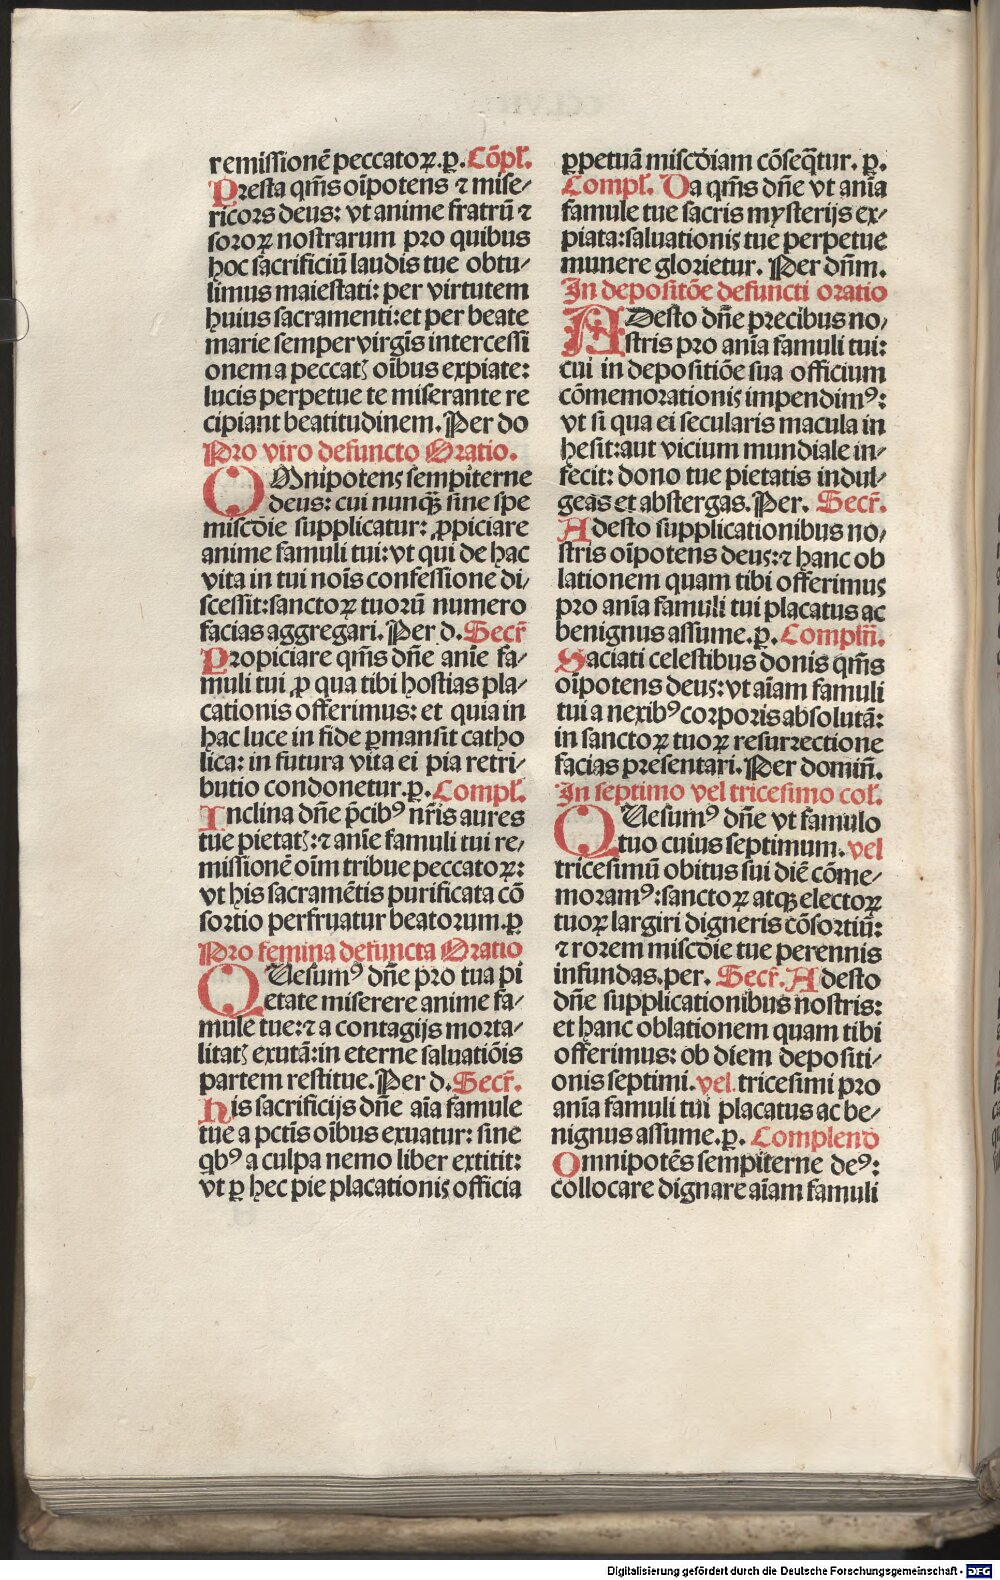 remissionē peccatoꝝ.ꝑ. Cōpl'.
Presta qm̄s oīpotens ⁊ mise/
ricors deus: vt anime fratrū ⁊
soroꝝ nostrarum pro quibus
hoc sacrificiū laudis tue obtu/
limus maiestati: per virtutem
huius sacramenti:et per beate
marie semper virgīs intercessi
onem a peccatꝭ oībus expiate:
lucis perpetue te miserante re
cipiant beatitudinem. Per do
Pro viro defuncto Oratio.
OMnipotens sempiterne
deus: cui nunqꝫ sine spe
misc̄die supplicatur: ꝓpiciare
anime famuli tui: vt qui de hac
vita in tui noīs confessione di/
scessit:sanctoꝝ tuorū numero
facias aggregari. Per d. Secr̄
Propiciare qm̄s dn̄e anīe fa/
muli tui ꝓ qua tibi hostias pla/
cationis offerimus: et quia in
hac luce in fide ꝑmansit catho
lica: in futura vita ei pia retri/
butio condonetur.ꝑ. Compl'.
Inclina dn̄e p̄cibꝰ nr̄is aures
tue pietatꝭ:⁊ anīe famuli tui re/
missionē oīm tribue peccatoꝝ:
vt his sacramētis purificata cō
sortio perfruatur beatorum.ꝑ
Pro femina defuncta Oratio
QUesumꝰ dn̄e pro tua pi
etate miserere anime fa/
mule tue:⁊ a contagijs morta/
litatꝭ exutā:in eterne saluatiōis
partem restitue. Per d. Secr̄.
his sacrificijs dn̄e aīa famule
tue a pctīs oībus exuatur: sine
qbꝰ a culpa nemo liber extitit:
vt ꝑ hec pie placationis officia
ꝑpetuā misc̄diam cōseq̄tur. ꝑ.
Compl'. Da qm̄s dn̄e vt anīa
famule tue sacris mysterijs ex/
piata:saluationis tue perpetue
munere glorietur. Per dn̄m.
In depositōe defuncti oratio
ADesto dn̄e precibus no/
stris pro anīa famuli tui:
cui in depositiōe sua officium
cōmemorationis impendimꝰ:
vt si qua ei secularis macula in
hesit:aut vicium mundiale in/
fecit: dono tue pietatis indul/
geas et abstergas. Per. Secr̄.
Adesto supplicationibus no/
stris oīpotens deus:⁊ hanc ob
lationem quam tibi offerimus
pro anīa famuli tui placatus ac
benignus assume.ꝑ. Compln̄.
Saciati celestibus donis qm̄s
oīpotens deus: vt aīam famuli
tui a nexibꝰ corporis absolutā:
in sanctoꝝ tuoꝝ resurrectione
facias presentari. Per domin̄.
In septimo vel tricesimo col'.
QUesumꝰ dn̄e vt famulo
tuo cuius septimum. vel
tricesimū obitus sui diē cōme/
moramꝰ:sanctoꝝ atqꝫ electoꝝ
tuoꝝ largiri digneris cōsortiū:
⁊ rorem misc̄die tue perennis
infundas.per. Secr̄. Adesto
dn̄e supplicationibus nostris:
et hanc oblationem quam tibi
offerimus: ob diem depositi/
onis septimi. vel tricesimi pro
anīa famuli tui placatus ac be/
nignus assume.ꝑ. Complend
Omnipotēs sempiterne deꝰ:
collocare dignare aīam famuli
Digitalisierung gefördert durch die Deutsche Forschungsgemeinschaft - DFG